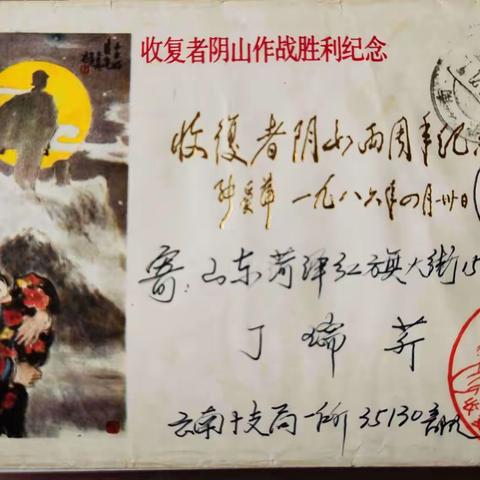 收复者阴山作战胜利纪念
收復者阴山两周年纪
一九八六年四月卅日
寄:山东菏泽红旗大街15
丁瑞芹
云南十支局一所35130部队